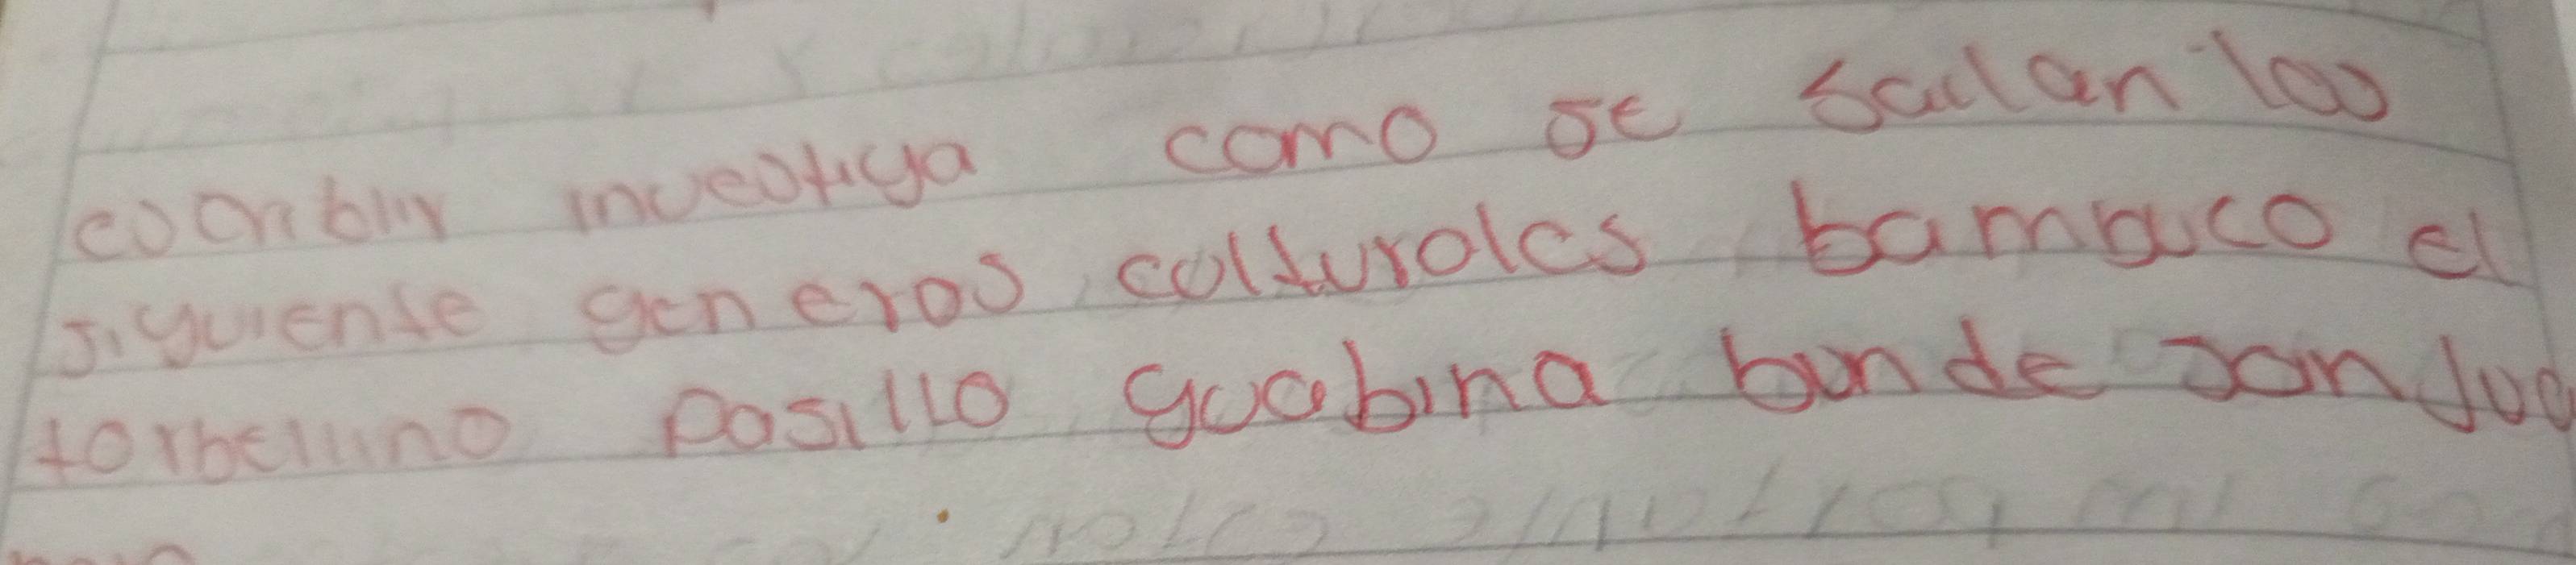 investiga como se bailan los
siguiente generos colturales bambuco el
torbellino pasillo guabina bunde sanjua